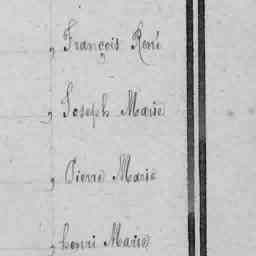 , François René
, Joseph Marie
, Pierre Marie
, henri Marie